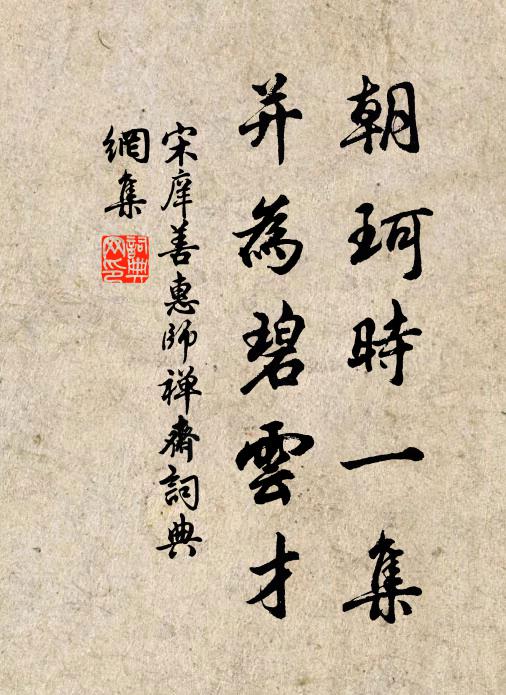 朝珂時一集
并為碧雲才
宋庠善惠師禅齋詞典
網集
詞典
网印